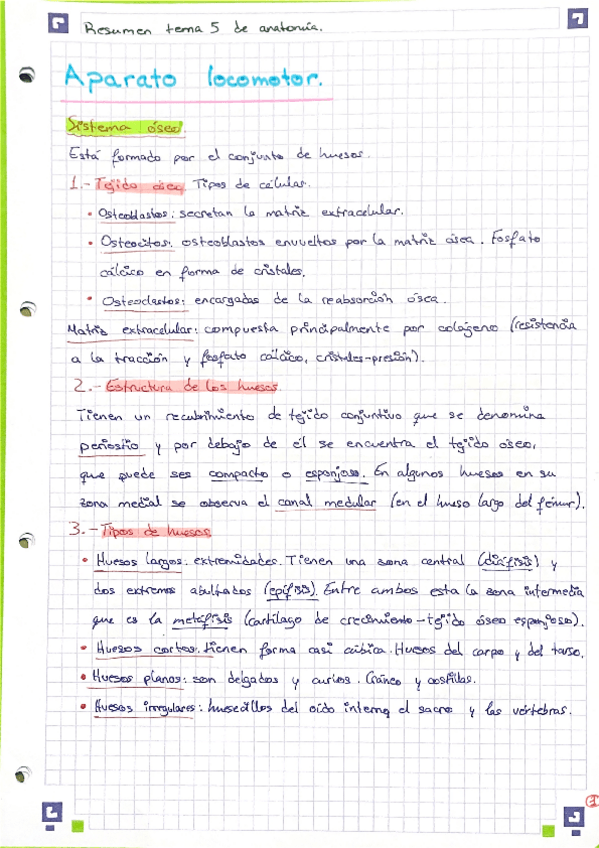 Resumen tema 5 de anatomía.
Aparato locomotor.
Sistema óseo.
Está formado por el conjunto de huesos.
1.- Tejido óseo. Tipos de células.
• Osteoblastos: secretan la matriz extracelular.
• Osteocitos: osteoblastos envueltos por la matriz ósea. Fosfato
cálcico en forma de cristales.
• Osteoclastos: encargadas de la reabsorción ósea.
Matriz extracelular: compuesta principalmente por colágeno (resistencia
a la tracción y fosfato cálcico, cristales-presión).
2.- Estructura de los huesos.
Tienen un recubrimiento de tejido conjuntivo que se denomina
periostio y por debajo de él se encuentra el tejido óseo,
que puede ser compacto o esponjoso. En algunos huesos en su
zona medial se observa el canal medular (en el hueso largo del fémur).
3.- Tipos de huesos
• Huesos largos: extremidades. Tienen una zona central (diáfisis) y
dos extremos abultados (epífisis). Entre ambos esta la zona intermedia
que es la metáfisis (cartílago de crecimiento - tejido óseo esponjoso).
• Huesos cortos: tienen forma casi cúbica. Huesos del carpo y del tarso.
• Huesos planos: son delgados y curvos. Cráneo y costillas.
• Huesos irregulares: huesecillos del oído interno, el sacro y las vértebras.
1